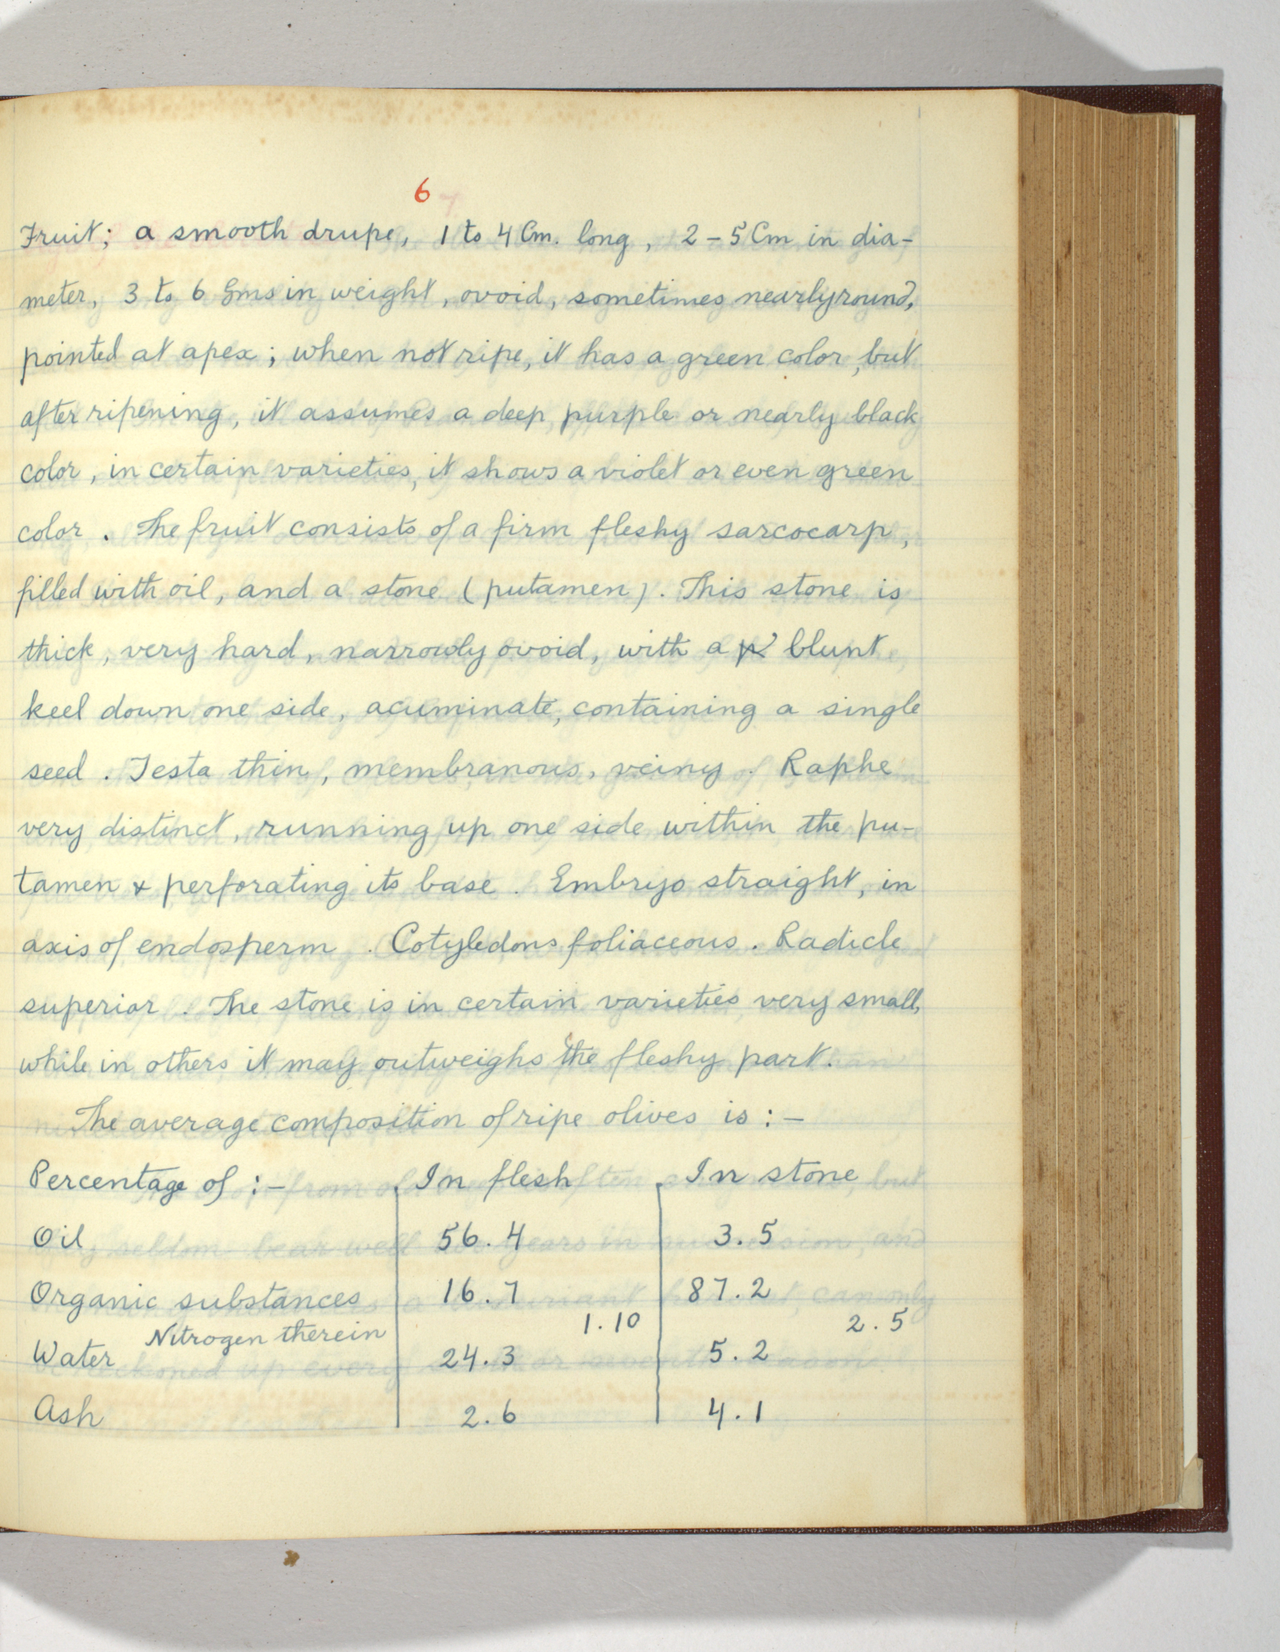 6
Fruit; a smooth drupe, 1 to 4 Cm. long, 2-5 Cm in dia-
meter, 3 to 6 Gms in weight, ovoid, sometimes nearly round,
pointed at apex; when not ripe, it has a green color, but
after ripening, it assumes a deep purple or nearly black
color, in certain varieties, it shows a violet or even green
color. The fruit consists of a firm fleshy sarcocarp,
filled with oil, and a stone (putamen). This stone is
thick, very hard, narrowly ovoid, with a blunt
keel down one side, acuminate, containing a single
seed. Testa thin, membranous, veiny. Raphe
very distinct, running up one side within the pu-
tamen & perforating its base. Embryo straight, in
axis of endosperm. Cotyledons foliaceous. Radicle
superior. The stone is in certain varieties very small,
while in others it may outweighs the fleshy part.
The average composition of ripe olives is :-
Percentage of :- In flesh In stone
Oil 56.4 3.5
Organic substances 16.7 87.2
Nitrogen therein 1.10 2.5
Water 24.3 5.2
Ash 2.6 4.1